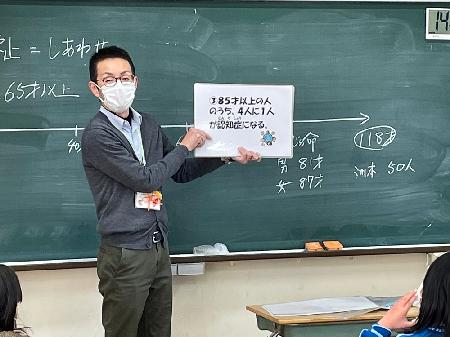 止 = しあわせ
65才以上
③85才以上の人
のうち、4人に1人
が認知症になる。
命
男 81才
女 87才
118才
50人
14